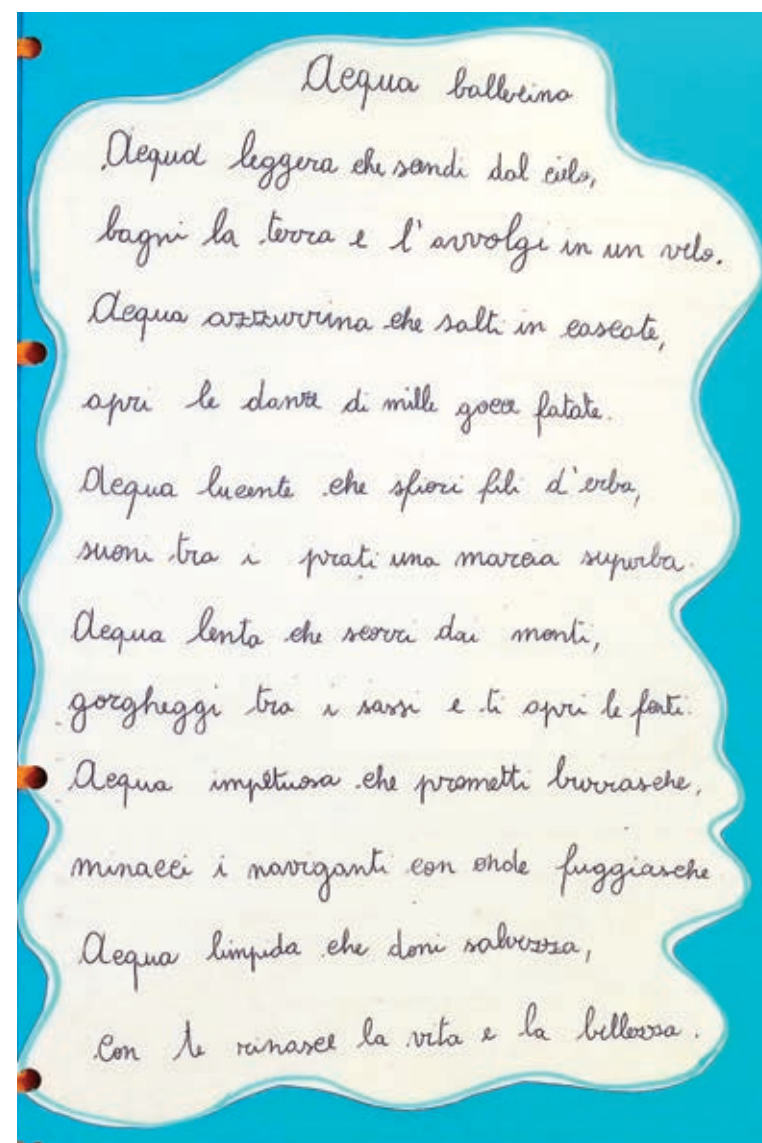 Acqua ballerina
Acqua leggera che scendi dal cielo,
bagni la terra e l'avvolgi in un velo.
Acqua azzurrina che salti in cascate,
apri le danze di mille gocce fatate.
Acqua lucente che sfiori fili d'erba,
suoni tra i prati una marcia superba.
Acqua lenta che scorri dai monti,
gorgheggi tra i sassi e ti apri le fonti.
Acqua impetuosa che prometti burrasche,
minacci i naviganti con onde fuggiasche
Acqua limpida che doni salvezza,
Con te rinasce la vita e la bellezza.